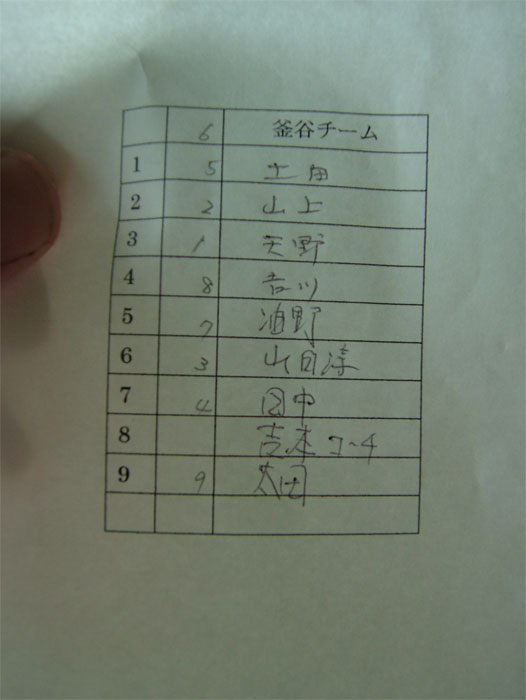 6 釜谷チーム
1 5 土田
2 2 山上
3 1 天野
4 8 吉川
5 7 油野
6 3 山田淳
7 4 田中
8 吉本コーチ
9 9 太田